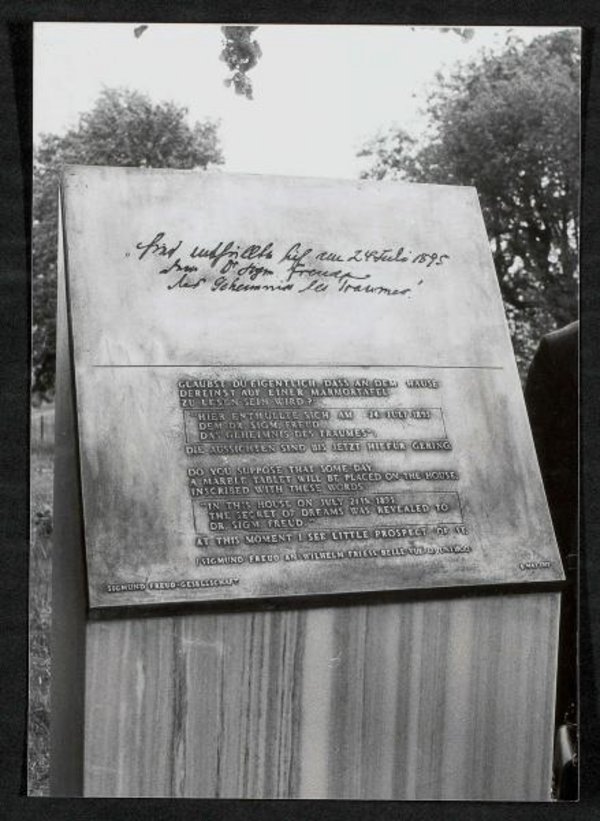 "Hier enthüllte sich am 24 Juli 1895
dem Dr Sigm. Freud
das Geheimnis des Traumes."
GLAUBST DU EIGENTLICH, DASS AN DEM HAUSE
DEREINST AUF EINER MARMORTAFEL
ZU LESEN SEIN WIRD?
"HIER ENTHÜLLTE SICH AM 24. JULI 1895
DEM DR. SIGM. FREUD
DAS GEHEIMNIS DES TRAUMES".
DIE AUSSICHTEN SIND BIS JETZT HIEFÜR GERING.
DO YOU SUPPOSE THAT SOME DAY
A MARBLE TABLET WILL BE PLACED ON THE HOUSE,
INSCRIBED WITH THESE WORDS
"IN THIS HOUSE ON JULY 24TH, 1895
THE SECRET OF DREAMS WAS REVEALED TO
DR. SIGM. FREUD."
AT THIS MOMENT I SEE LITTLE PROSPECT OF IT.
SIGMUND FREUD AN WILHELM FLIESS BELLE VUE
SIGMUND FREUD-GESELLSCHAFT